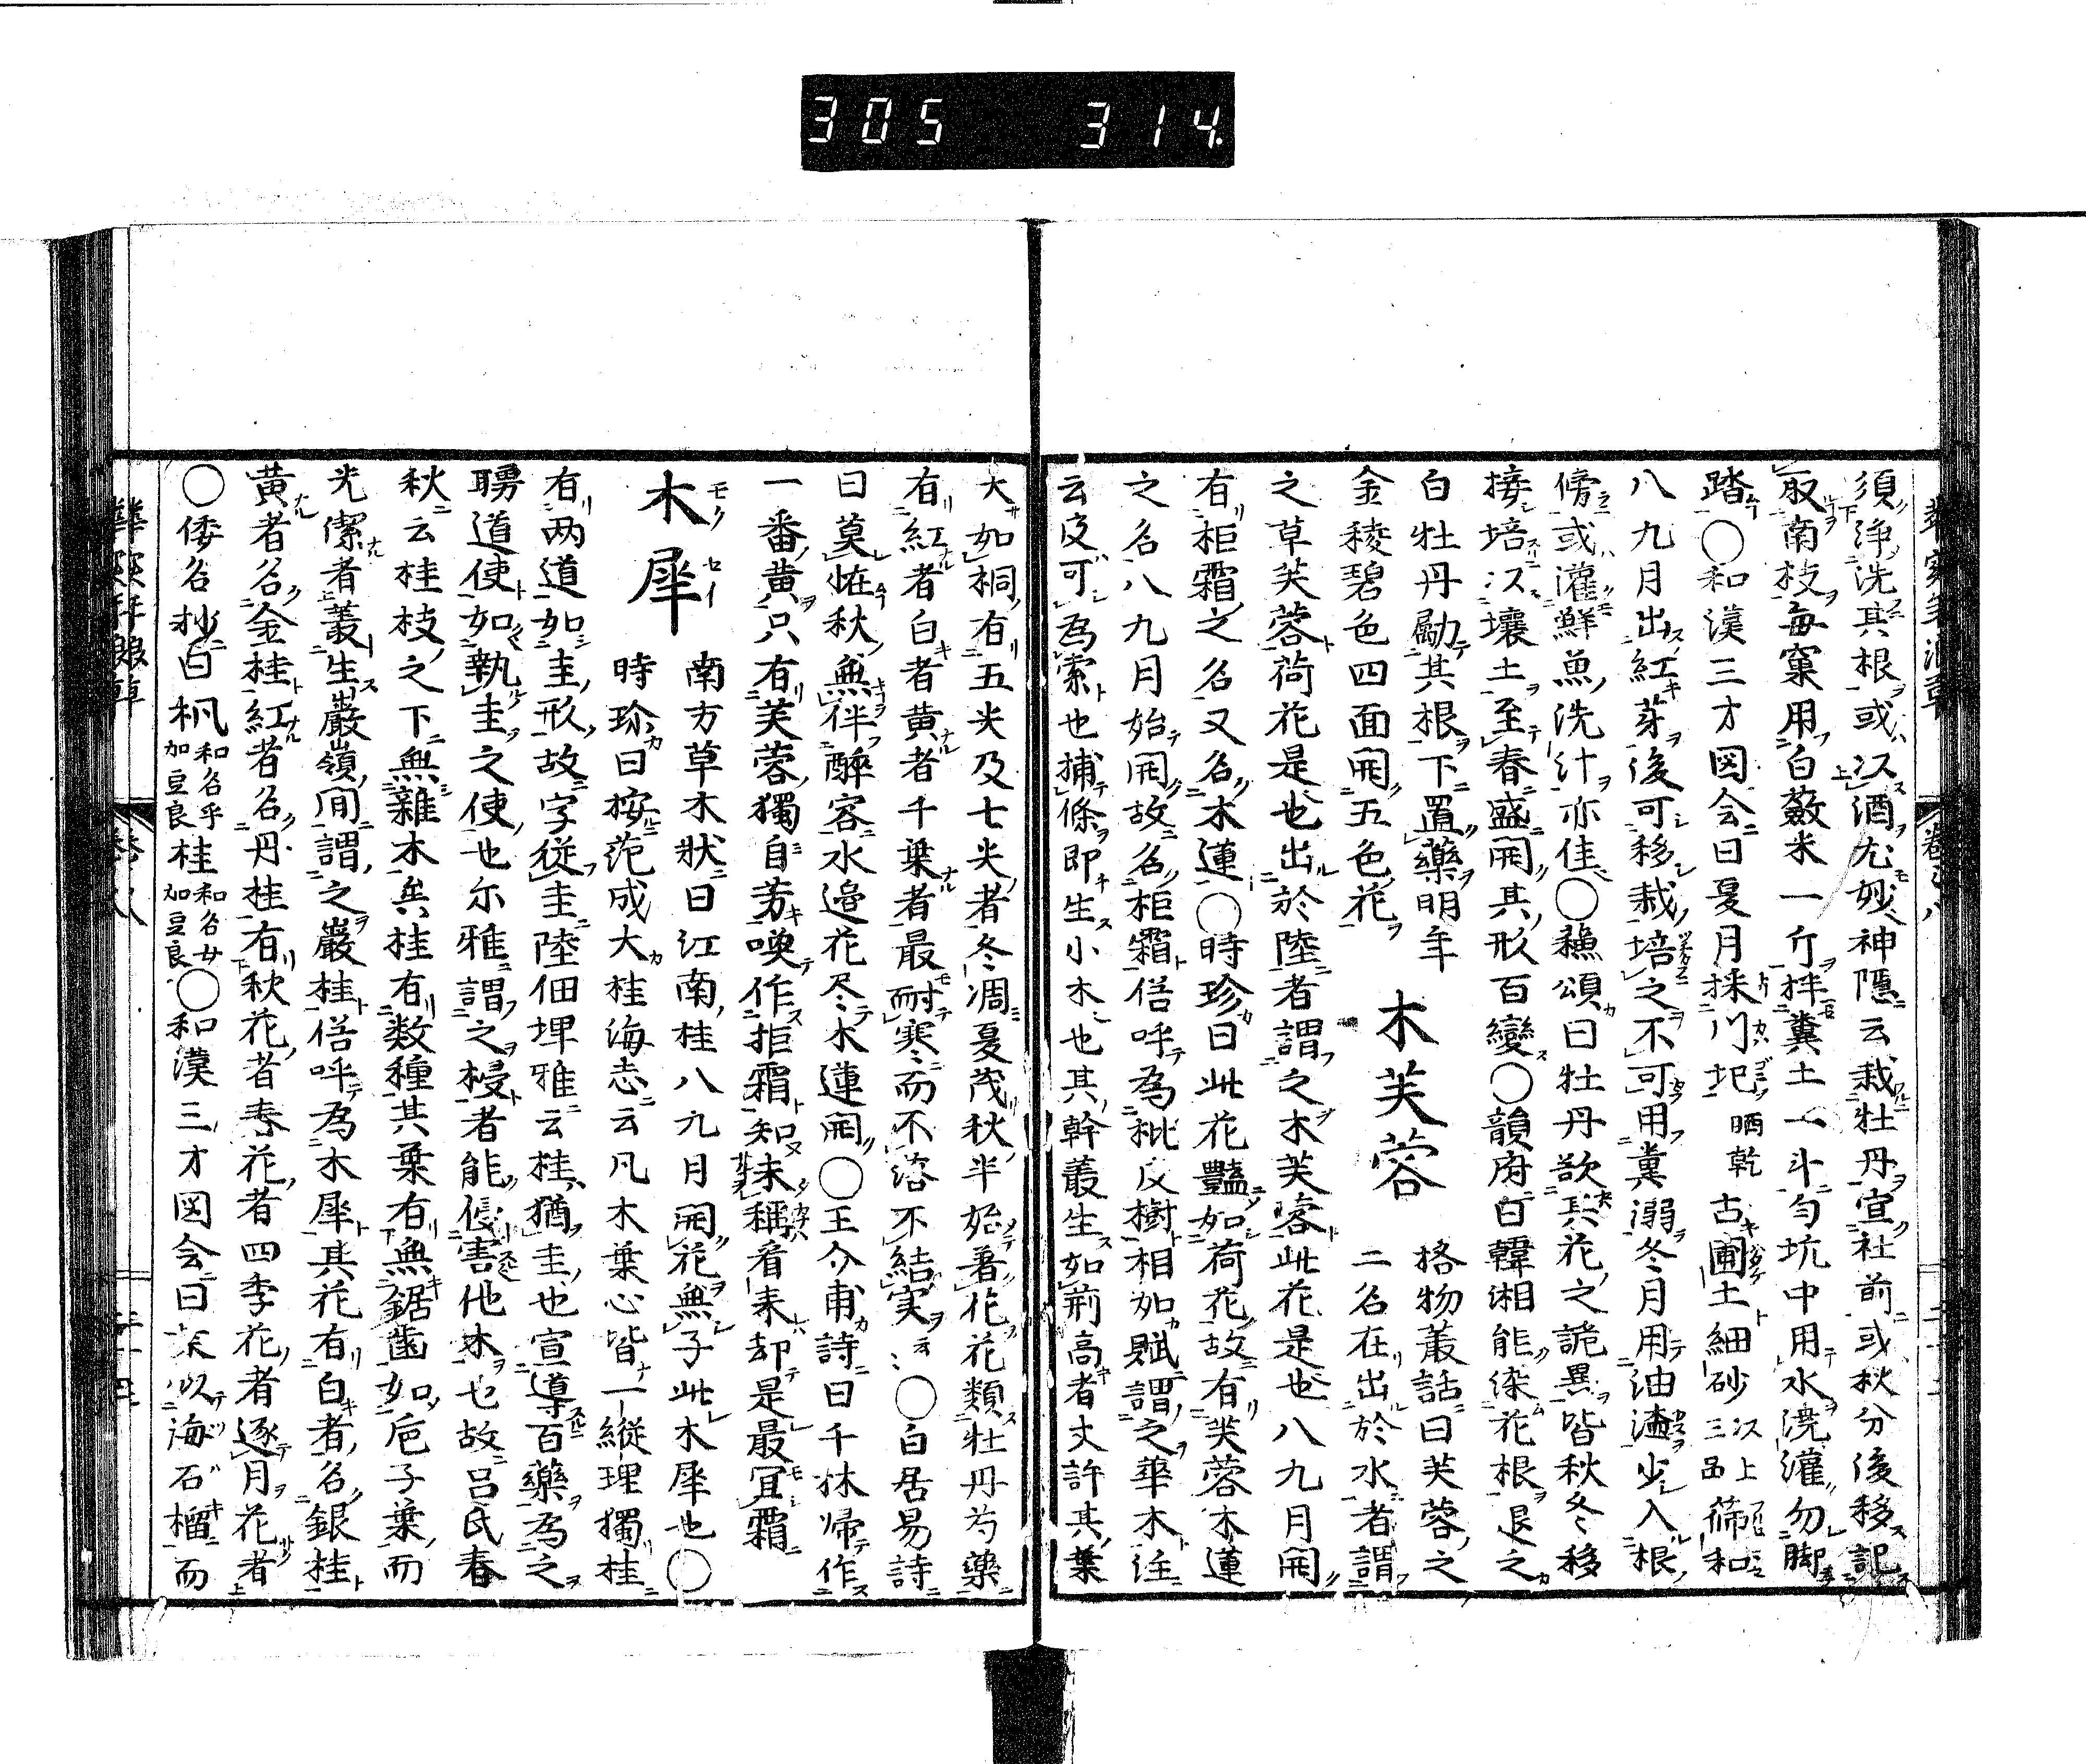 305 314
須浄洗其根或以酒尤妙神隠云栽牡丹宜社前或秋分後移記
取南枝毎窠用白蘞末一斤拌糞土一斗勻坑中用水澆灌勿脚
踏○和漢三才図会曰夏月採川圯晒乾古圃土細砂以上三品篩和
八九月出紅芽後可移栽培之不可用糞溺冬月用油滓少入根
傍或灌鮮魚洗汁亦佳○蘓頌曰牡丹欲其花之詭異皆秋冬移
接培以壤土至春盛開其形百變○韻府曰韓湘能染花根退之
白牡丹斸其根下置藥明年
金稜碧色四面開五色花
木芙蓉
格物叢話曰芙蓉之
二名在出於水者謂
之草芙蓉荷花是也出於陸者謂之木芙蓉此花是也八九月開
有柜霜之名又名木蓮○時珍曰此花豔如荷花故有芙蓉木蓮
之名八九月始開故名柜霜俗呼為枇皮樹相如賦謂之華木注
云皮可為索也捕條即生小木也其幹叢生如荊高者丈許其葉
大如桐有五尖及七尖者冬凋夏茂秋半始著花花類牡丹芍藥
有紅者白者黄者千葉者最耐寒而不落不結実云々○白居易詩
曰莫怪秋無伴醉容水邉花尽木蓮開○王介甫詩曰千林帰作
一番黄只有芙蓉獨自芳喚作拒霜知未稱看来却是最宜霜
木犀
モクセー
南方草木狀曰江南桂八九月開花無子此木犀也○
時珍曰按范成大桂海志云凡木葉心皆一縦理獨桂
有两道如圭形故字從圭陸佃埤雅云桂猶圭也宣導百藥為之
聘道使如執圭之使也尓雅謂之梫者能侵害他木也故呂氏春
秋云桂枝之下無雜木矣桂有数種其葉有無鋸歯如巵子葉而
光潔者叢生巖嶺間謂之巖桂俗呼為木犀其花有白者名銀桂
黄者名金桂紅者名丹桂有秋花者春花者四季花者逐月花者
○倭名抄曰楓和名乎加豆良桂和名女加豆良○和漢三才図会曰栄以海石榴而